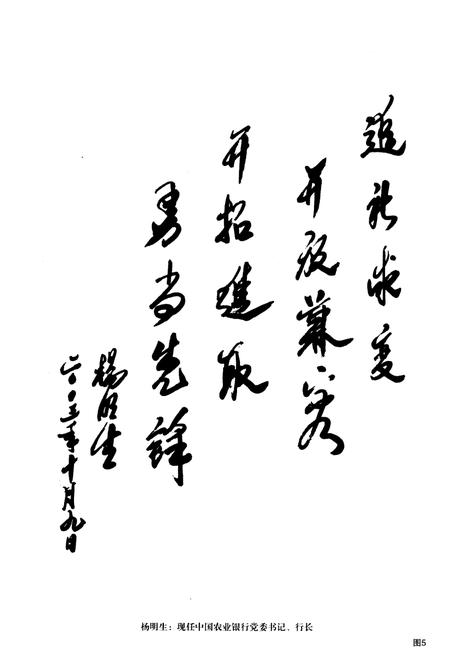 追新求变
开放兼容
开拓進取
勇当先鋒
杨明生
二〇〇三年十月九日
杨明生：现任中国农业银行党委书记、行长
图5